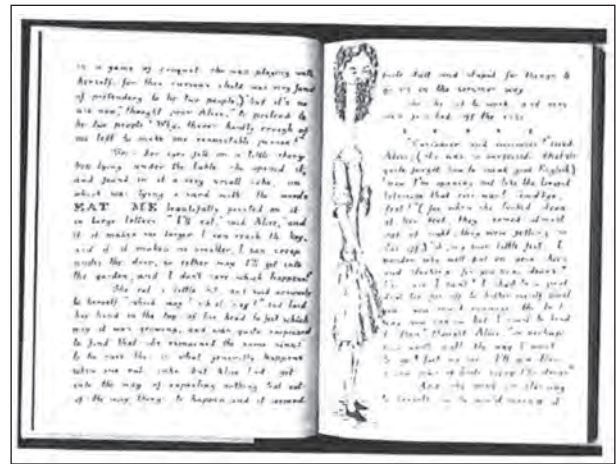 in a game of croquet she was playing with
herself, for this curious child was very fond
of pretending to be two people,) "but it's no
use now," thought poor Alice, "to pretend to
be two people! Why, there's hardly enough of
me left to make one respectable person!"
Soon her eyes fell on a little ebony
box lying under the table: she opened it,
and found in it a very small cake, on
which was lying a card with the words
EAT ME beautifully printed on it
in large letters. "I'll eat," said Alice, "and
if it makes me larger, I can reach the key,
and if it makes me smaller, I can creep
under the door, so either way I'll get into
the garden, and I don't care which happens!"
She eat a little bit, and said anxiously
to herself "which way? which way?" and laid
her hand on the top of her head to feel which
way it was growing, and was quite surprised
to find that she remained the same size:
to be sure this is what generally happens
when one eats cake, but Alice had got
into the way of expecting nothing but out
of the way things to happen, and it seemed
quite dull and stupid for things to
go on in the common way.
So she set to work, and very
soon finished off the cake.
* * * * *
"Curiouser and curiouser!" cried
Alice, (she was so surprised that she
quite forgot how to speak good English,)
"now I'm opening out like the largest
telescope that ever was! Goodbye,
feet!" (for when she looked down
at her feet, they seemed almost
out of sight, they were getting so
far off,) "oh, my poor little feet, I
wonder who will put on your shoes
and stockings for you now, dears?
I'm sure I can't! I shall be a great
deal too far off to bother myself about
you: you must manage the best
way you can but I must be kind
to them," thought Alice, "or perhaps
they won't walk the way I want
to go! Let me see: I'll give them
a new pair of boots every Christmas."
And she went on planning
to herself how she would manage it